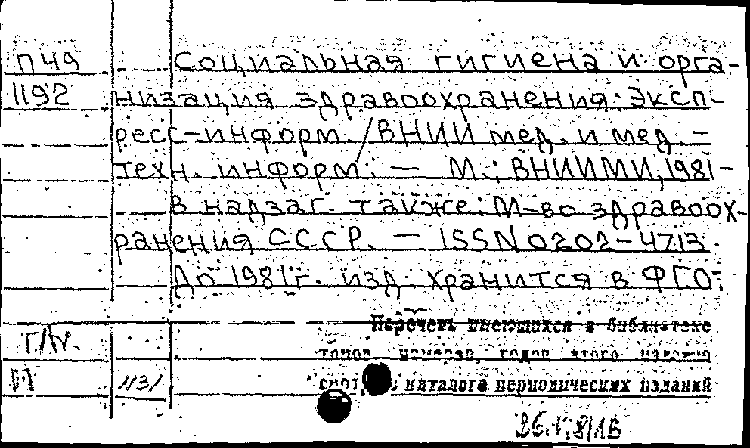 П49 Социальная гигиена и орга-
1192 низация здравоохранения: Эксп-
ресс-информ. / ВНИИ мед. и мед.-
техн. информ. — М.: ВНИИМИ, 1981-
В надзаг. также: М-во здравоох-
ранения СССР. — ISSN 0202-4713.
До 1981 г. изд. хранится в ФГО.
Перечень имеющихся в библиотеке
томов, номеров, годов этого издания
смотри в каталоге периодических изданий
1131